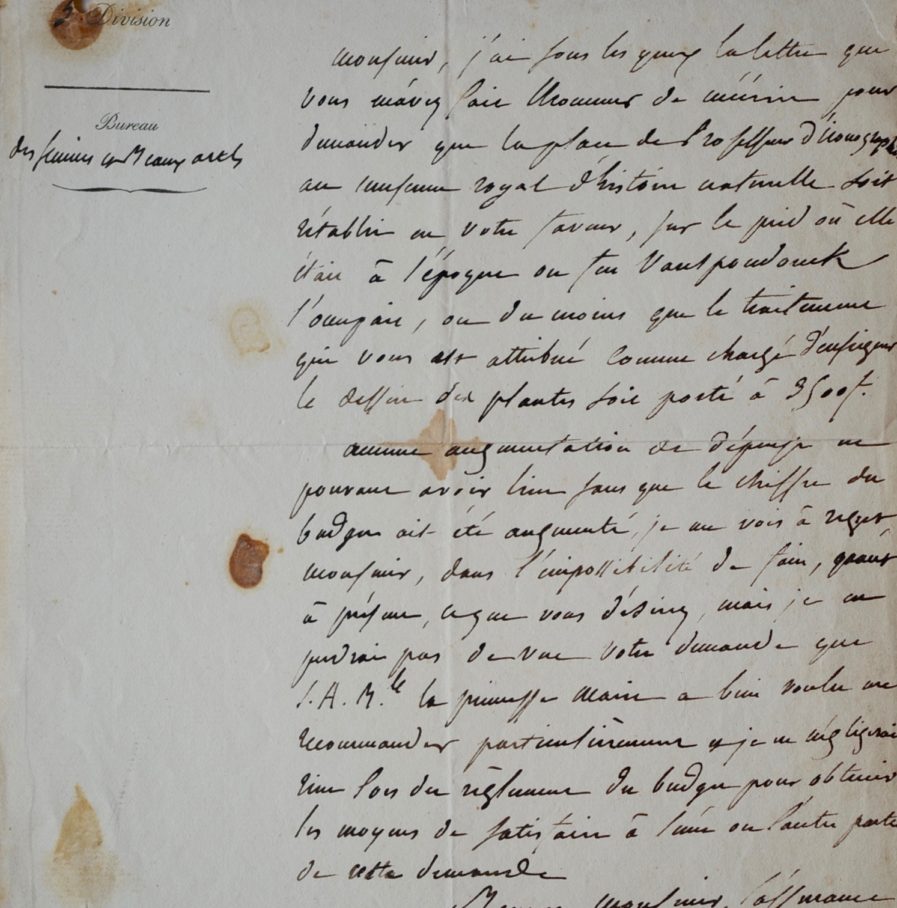 3e Division
Bureau
des sciences et Beaux arts
Monsieur, j'ai sous les yeux la lettre que
vous m'avez fait l'honneur de m'écrire pour
demander que la place de Professeur d'Iconographie
au muséum royal d'histoire naturelle soit
rétablie en votre faveur, sur le pied où elle
était à l'époque où feu Vanspaendonck
l'occupait, ou du moins que le traitement
qui vous est attribué comme chargé d'enseigner
le dessin des plantes soit porté à 2500f.
aucune augmentation de dépense ne
pouvant avoir lieu sans que le chiffre du
budget ait été augmenté, je me vois à regret,
monsieur, dans l'impossibilité de faire, quant
à présent, ce que vous désirez, mais je ne
perdrai pas de vue votre demande que
S. A. R.le la princesse Marie a bien voulu me
recommander particulièrement et je ne négligerai
rien lors du règlement du budget pour obtenir
les moyens de satisfaire à l'une ou l'autre partie
de cette demande
Monsieur, l'assurance